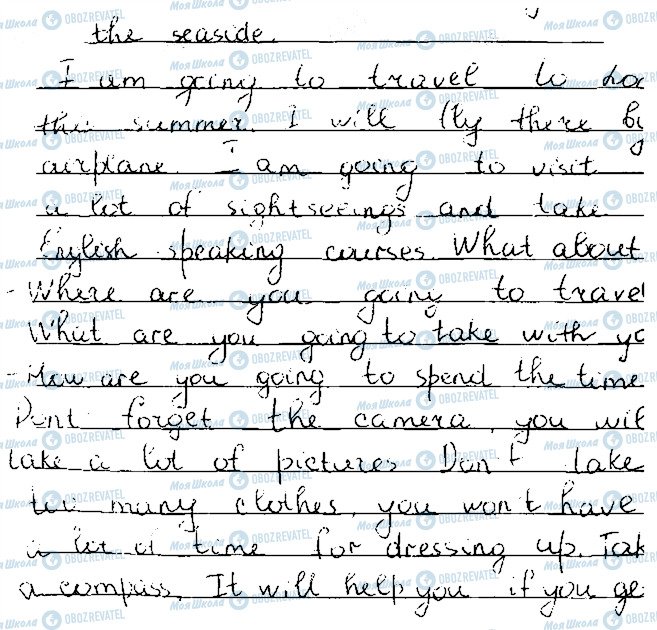 the seaside.
I am going to travel to Lo
this summer. I will fly there by
airplane. I am going to visit
a lot of sightseeings and take
English speaking courses. What about
- Where are you going to travel
What are you going to take with yo
- How are you going to spend the time
Dont forget the camera, you will
take a lot of pictures Don't take
too many clothes, you won't have
a lot of time for dressing up. Tak
a compass. It will help you if you ge